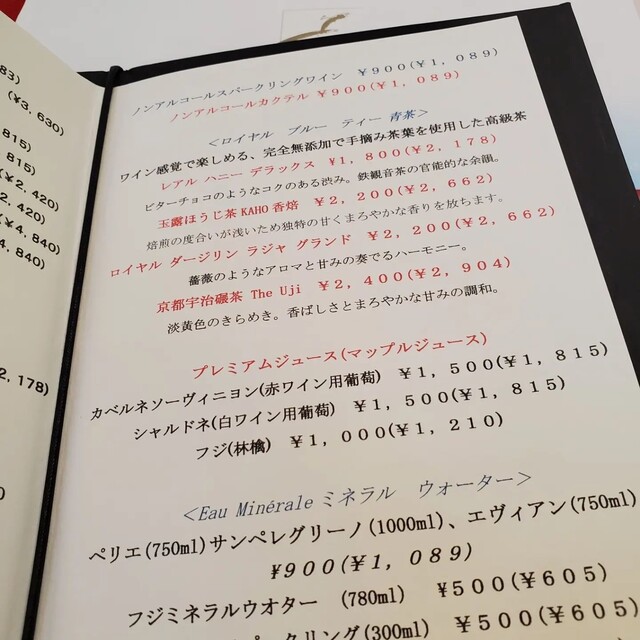 83)
(￥3, 630)
815)
815)
(￥2, 420)
2, 420)
(￥4, 840)
4, 840)
2, 178)
0
ノンアルコールスパークリングワイン ￥900(￥1, 089)
ノンアルコールカクテル ￥900(￥1, 089)
＜ロイヤル ブルー ティー 青茶＞
ワイン感覚で楽しめる、完全無添加で手摘み茶葉を使用した高級茶
レアル ハニー デラックス ￥1, 800(￥2, 178)
ビターチョコのようなコクのある渋み。鉄観音茶の官能的な余韻。
玉露ほうじ茶KAHO香焙 ￥2, 200(￥2, 662)
焙煎の度合いが浅いため独特の甘くまろやかな香りを放ちます。
ロイヤル ダージリン ラジャ グランド ￥2, 200(￥2, 662)
薔薇のようなアロマと甘みの奏でるハーモニー。
京都宇治碾茶 The Uji ￥2, 400(￥2, 904)
淡黄色のきらめき。香ばしさとまろやかな甘みの調和。
プレミアムジュース(マップルジュース)
カベルネソーヴィニヨン(赤ワイン用葡萄) ￥1, 500(￥1, 815)
シャルドネ(白ワイン用葡萄) ￥1, 500(￥1, 815)
フジ(林檎) ￥1, 000(￥1, 210)
＜Eau Minérale ミネラル ウォーター＞
ペリエ(750ml)サンペレグリーノ(1000ml)、エヴィアン(750ml)
￥900(￥1, 089)
フジミネラルウオター (780ml) ￥500(￥605)
ークリング(300ml) ￥500(￥605)